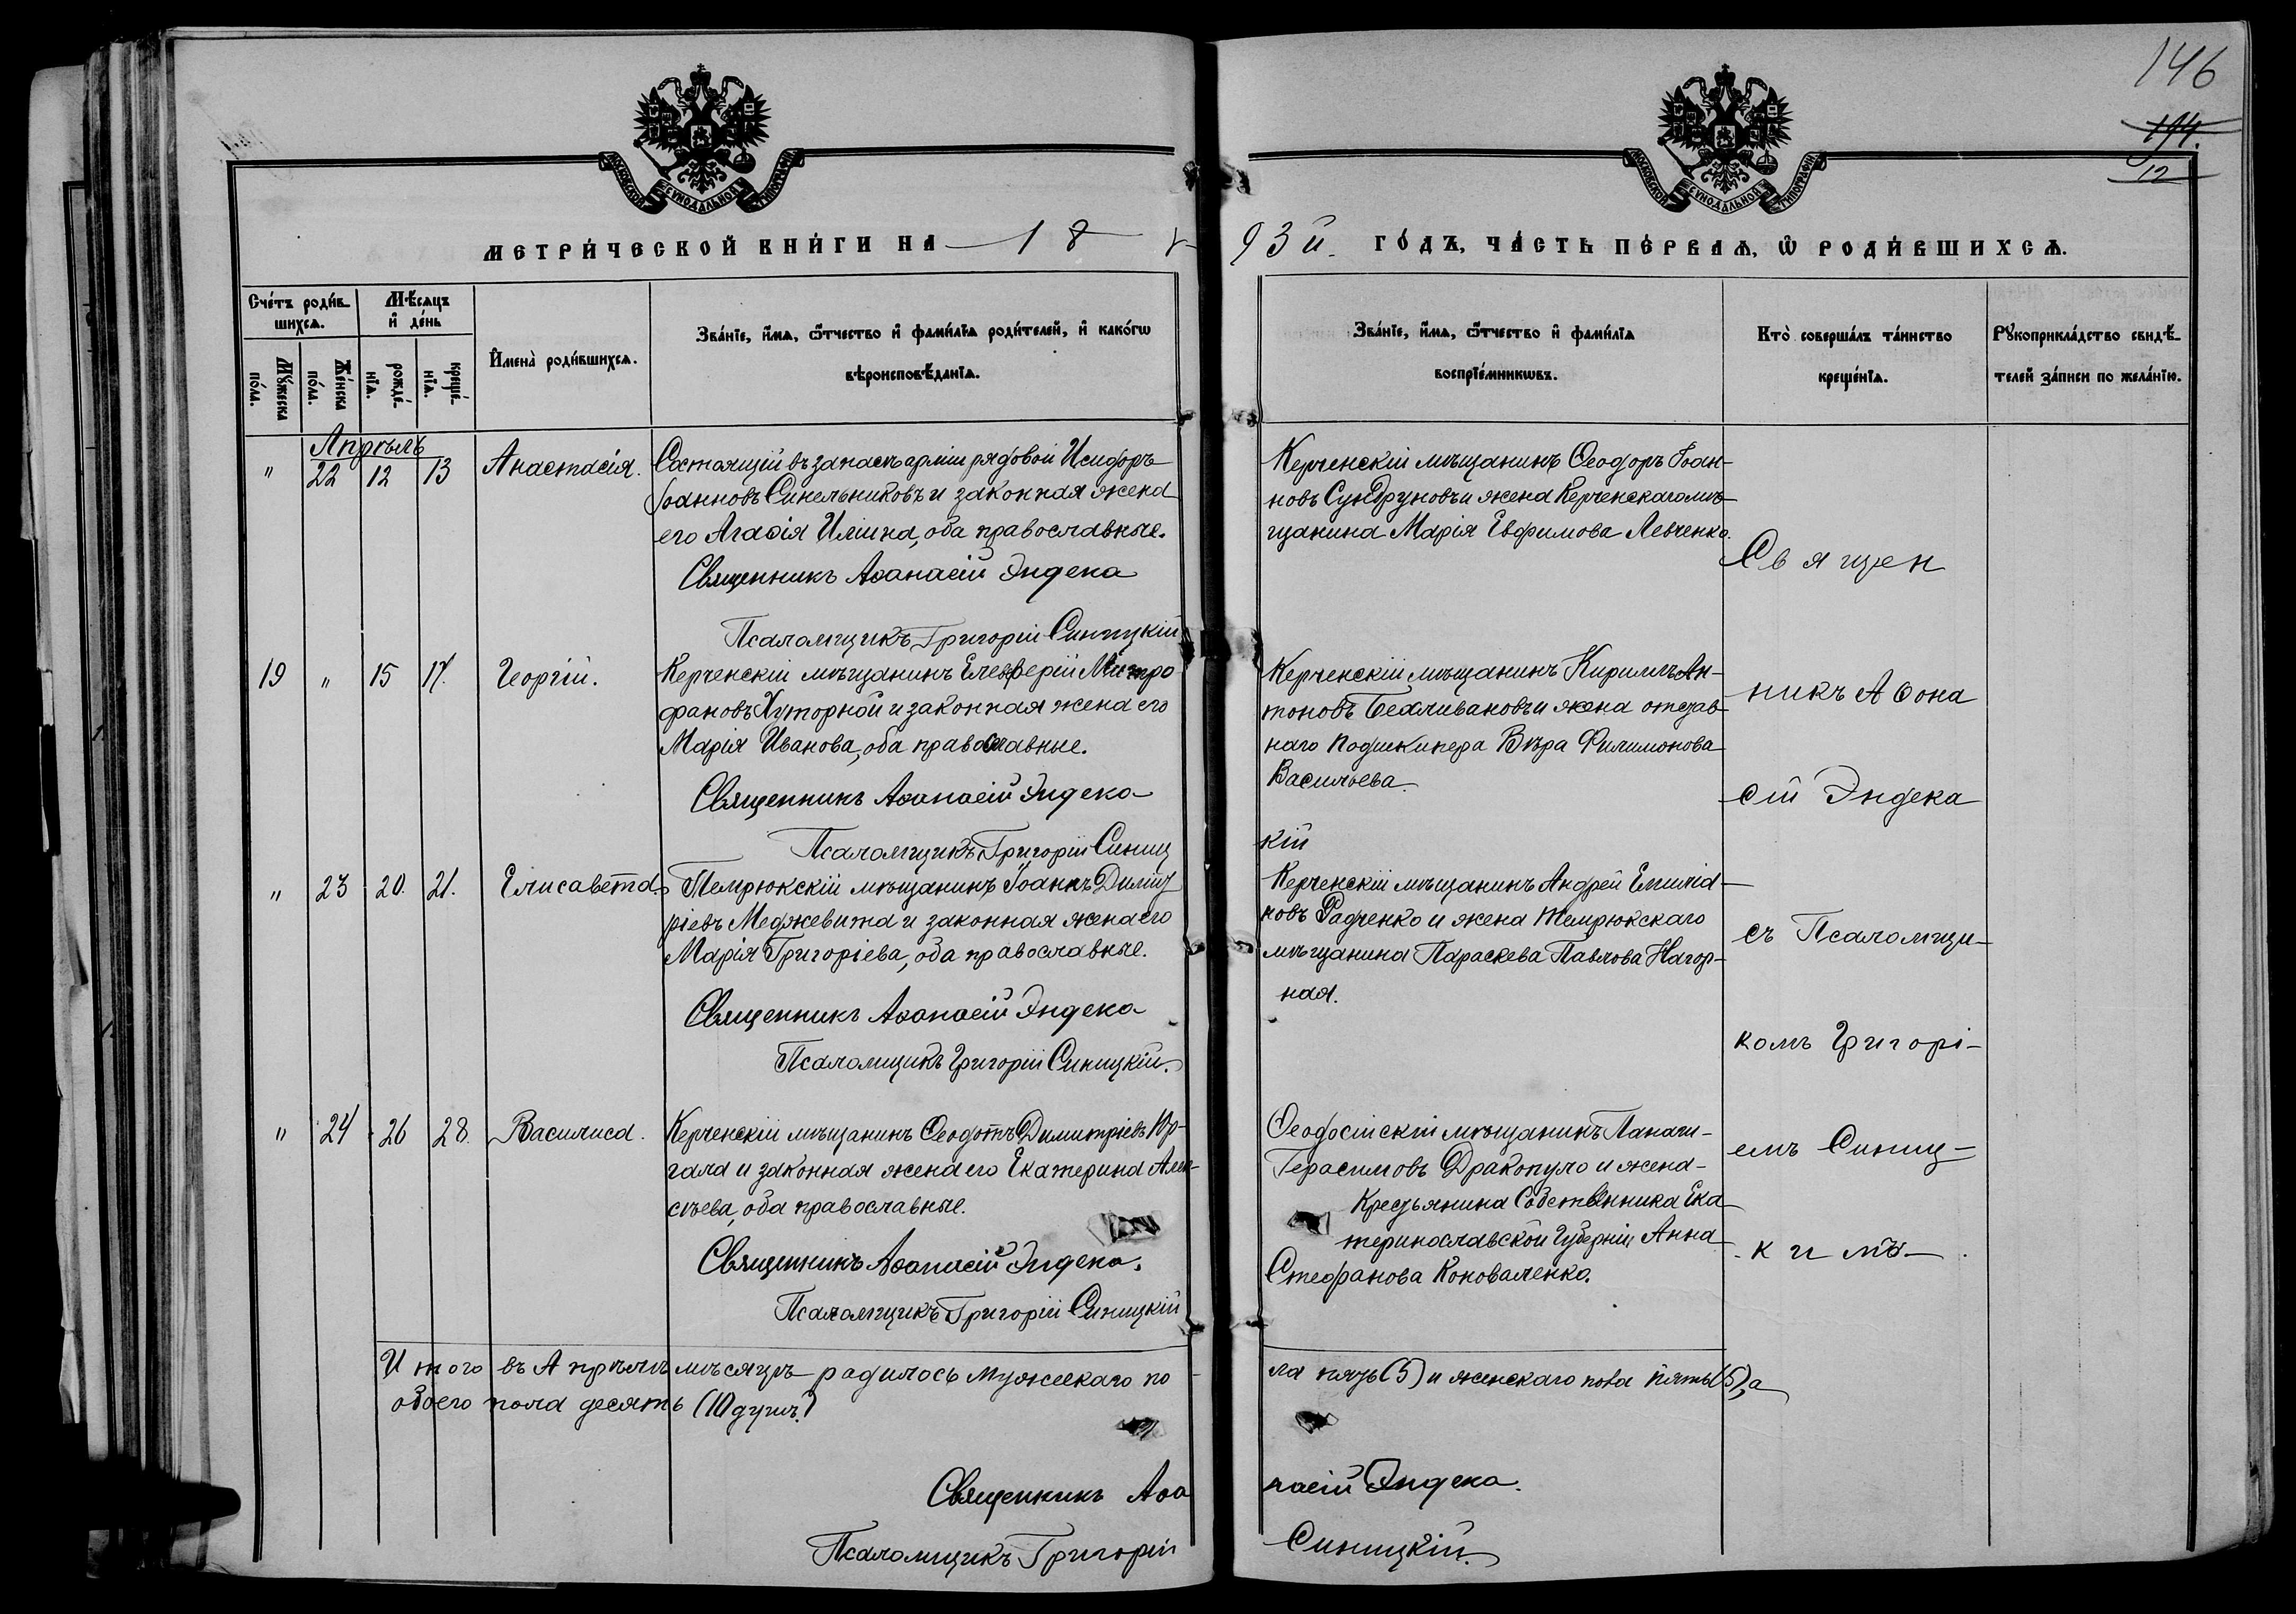 146
194.
12
МОСКОВСКОЙ СѴНОДАЛЬНОЙ ТИПОГРАФІИ
МОСКОВСКОЙ СѴНОДАЛЬНОЙ ТИПОГРАФІИ
МЕТРИ́ЧЕСКОЙ КНИ́ГИ НА 18
93й. ГО́ДЪ, ЧА́СТЬ ПЕ́РВАѦ, Ѡ҆ РОДИ́ВШИХСѦ.
Сче́тъ роди́вшихсѧ.
Мꙋ́жеска по́ла.
Же́нска по́ла.
Мѣ́сѧцъ и҆ де́нь
рожде́нїѧ.
креще́нїѧ.
И҆мена̀ роди́вшихсѧ.
Зва́нїе, и҆́мѧ, ѻ҆́тчество и҆ фами́лїѧ роди́телей, и҆ како́гѡ
вѣроисповѣ́данїѧ.
Зва́нїе, и҆́мѧ, ѻ҆́тчество и҆ фами́лїѧ
воспрїе́мникѡвъ.
Кто̀ соверша́лъ та́инство
креще́нїѧ.
Рꙋкоприкла́дство свидѣ́-
телей за́писи по жела́нїю.
Апрѣль
" 22 12 13 Анастасія.
Состоящій въ запасѣ арміи рядовой Исидоръ
Іоанновъ Синельниковъ и законная жена
его Агаѳія Иліина, оба православные.
Священникъ Аѳанасій Эндека
Псаломщикъ Григорій Синицкій
Керченскій мѣщанинъ Ѳеодоръ Іоан-
новъ Сундруновъ и жена Керченскаго мѣ-
щанина Марія Евфимова Левченко.
19 " 15 17. Георгій.
Керченскій мѣщанинъ Елевферій Митро
фановъ Хуторной и законная жена его
Марія Иванова, оба православные.
Священникъ Аѳанасій Эндека
Псаломщикъ Григорій Синиц
кій
Керченскій мѣщанинъ Кириллъ Ан-
тоновъ Бехливановъ и жена отстав-
наго подшкипера Вѣра Филимонова
Васильева.
" 23 20. 21. Елисавета.
Темрюкскій мѣщанинъ Іоаннъ Димит
ріевъ Меджевита и законная жена его
Марія Григоріева, оба православные.
Священникъ Аѳанасій Эндека
Псаломщикъ Григорій Синицкій.
Керченскій мѣщанинъ Андрей Емиліа-
новъ Радченко и жена Темрюкскаго
мѣщанина Параскева Павлова Нагор-
ная.
" 24 26 28. Василиса.
Керченскій мѣщанинъ Ѳеодотъ Димитріевъ
гала и законная жена его Екатерина Алек-
сѣева, оба православные.
Священникъ Аѳанасій Эндека.
Псаломщикъ Григорій Синицкій
Ѳеодосійскій мѣщанинъ Панаги-
Герасимовъ Дракопуло и жена
Крестьянина Собственника Ека
теринославской Губерніи Анна
Стефанова Коноваленко.
Священ
никъ Аѳона
сій Эндека
съ Псаломщи-
комъ Григорі-
емъ Синиц-
кимъ
Итого въ Апрѣлѣ мѣсяцѣ радилось мужескаго по
ла пять (5) и женскаго пола пять (5), а
обоего пола десять (10 душъ.)
Священникъ Аѳа
насій Эндека.
Псаломщикъ Григорій
Синицкій.